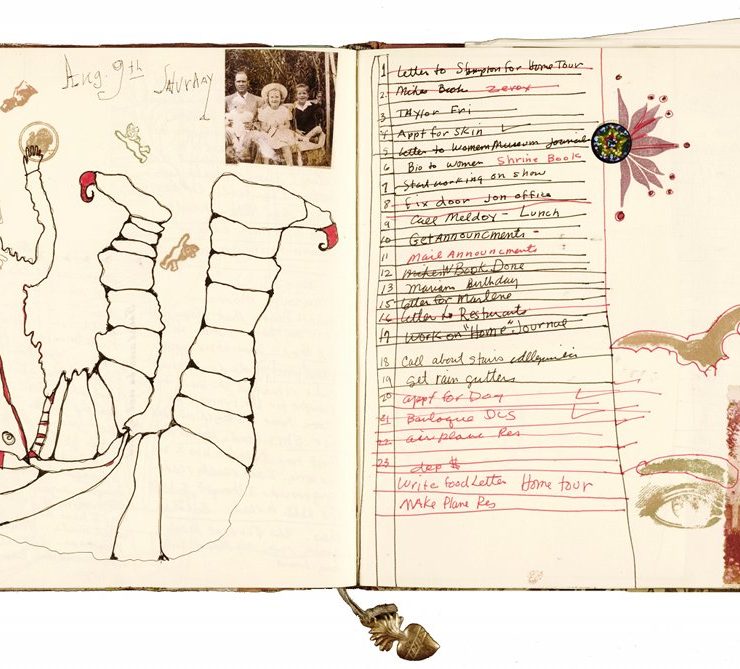 Aug. 9th SATURDAY
1 Letter to Shmpton for Home Tour
2 Mikes Book Zerox
3 TAYlor Fri
4 Appt for SKin
5 Letter to Women Museum Journal
6 Bio to women Shrine Book
7 Start working on show
8 fix door Jon office
9 Call Meldoy - Lunch
10 Get Announcments -
11 Mail Announcments
12 Book Done
13 Mariam Birthday
15 letter for Marlene
16 Letter to Resturants
17 Work on "Home" Journal
18 Call about stairs
19 Get rain gutters
20 appt for Day
21 Barloque DCS
22 airplane Res
23 dep $
Write food Letter Home tour
MAKe Plane Res